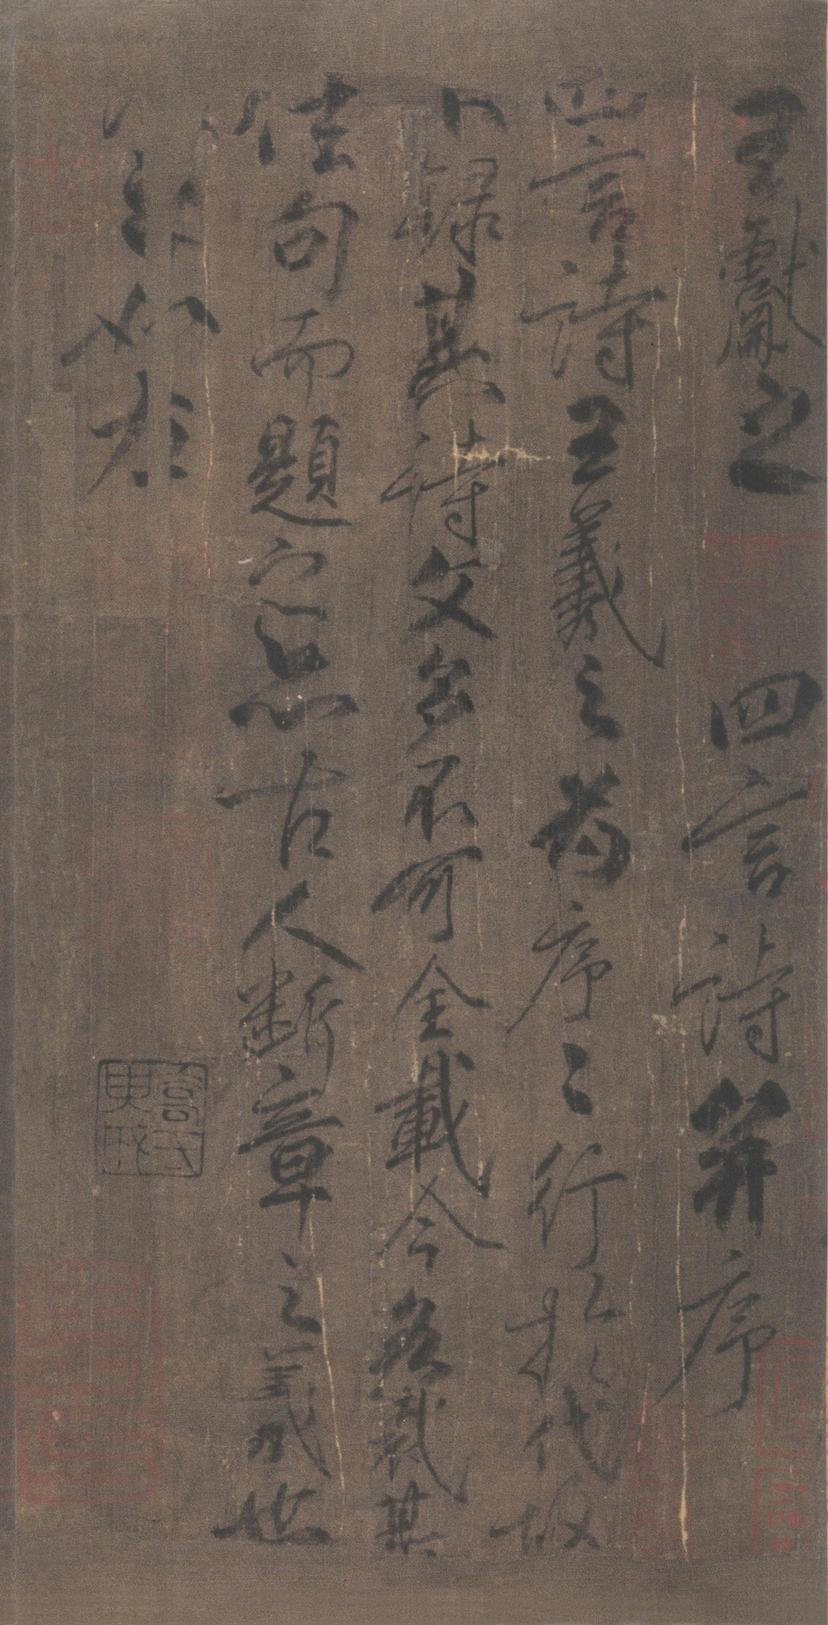 王獻之 四言詩并序
四言詩王羲之爲序序行於代故
不錄其詩文多不可全載今各裁其
佳句而題之亦古人斷章之義也
如左